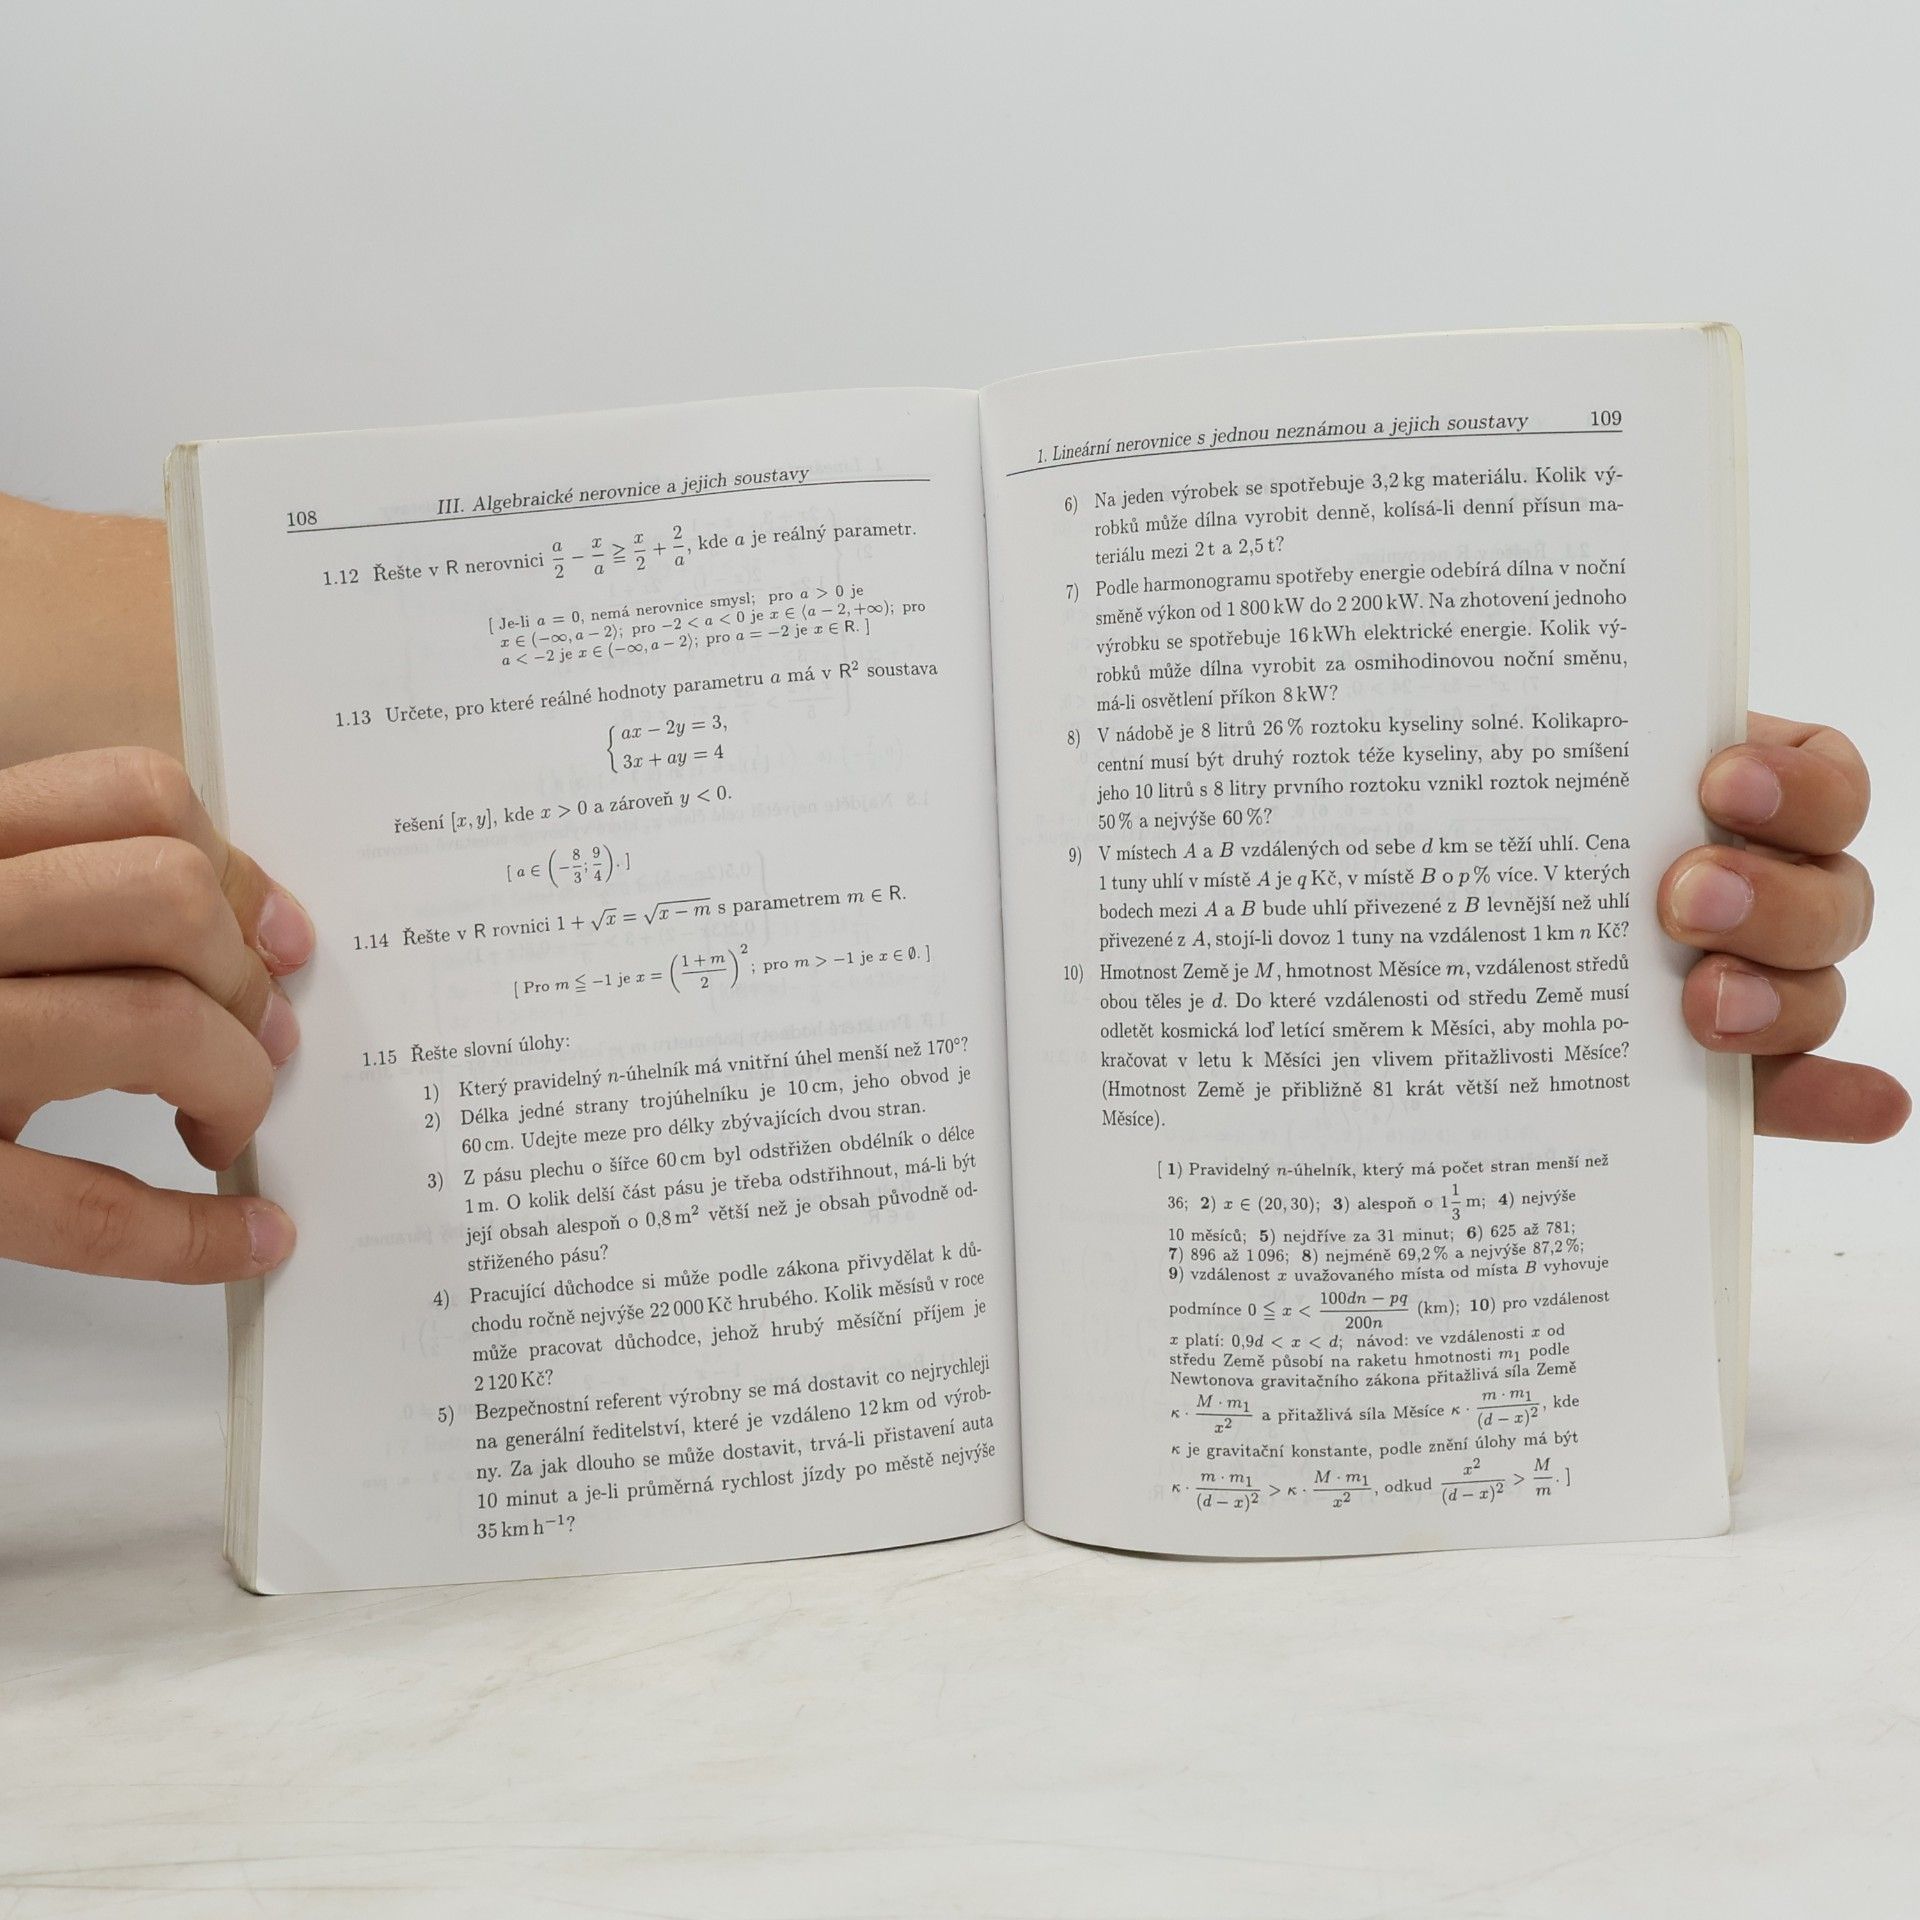 108 III. Algebraické nerovnice a jejich soustavy
1.12 Řešte v R nerovnici a/2 − x/a ≧ x/2 + 2/a, kde a je reálný parametr.
[ Je-li a = 0, nemá nerovnice smysl; pro a > 0 je
x ∈ (−∞, a − 2⟩; pro −2 < a < 0 je x ∈ ⟨a − 2, +∞); pro
a < −2 je x ∈ (−∞, a − 2⟩; pro a = −2 je x ∈ R. ]
1.13 Určete, pro které reálné hodnoty parametru a má v R² soustava
{ ax − 2y = 3,
3x + ay = 4
řešení [x, y], kde x > 0 a zároveň y < 0.
[ a ∈ (−8/3; 9/4). ]
1.14 Řešte v R rovnici 1 + √x = √(x − m) s parametrem m ∈ R.
[ Pro m ≦ −1 je x = ((1 + m)/2)²; pro m > −1 je x ∈ ∅. ]
1.15 Řešte slovní úlohy:
1) Který pravidelný n-úhelník má vnitřní úhel menší než 170°?
2) Délka jedné strany trojúhelníku je 10 cm, jeho obvod je
60 cm. Udejte meze pro délky zbývajících dvou stran.
3) Z pásu plechu o šířce 60 cm byl odstřižen obdélník o délce
1 m. O kolik delší část pásu je třeba odstřihnout, má-li být
její obsah alespoň o 0,8 m² větší než je obsah původně od-
střiženého pásu?
4) Pracující důchodce si může podle zákona přivydělat k dů-
chodu ročně nejvýše 22 000 Kč hrubého. Kolik měsísů v roce
může pracovat důchodce, jehož hrubý měsíční příjem je
2 120 Kč?
5) Bezpečnostní referent výrobny se má dostavit co nejrychleji
na generální ředitelství, které je vzdáleno 12 km od výrob-
ny. Za jak dlouho se může dostavit, trvá-li přistavení auta
10 minut a je-li průměrná rychlost jízdy po městě nejvýše
35 km h⁻¹?
1. Lineární nerovnice s jednou neznámou a jejich soustavy 109
6) Na jeden výrobek se spotřebuje 3,2 kg materiálu. Kolik vý-
robků může dílna vyrobit denně, kolísá-li denní přísun ma-
teriálu mezi 2 t a 2,5 t?
7) Podle harmonogramu spotřeby energie odebírá dílna v noční
směně výkon od 1 800 kW do 2 200 kW. Na zhotovení jednoho
výrobku se spotřebuje 16 kWh elektrické energie. Kolik vý-
robků může dílna vyrobit za osmihodinovou noční směnu,
má-li osvětlení příkon 8 kW?
8) V nádobě je 8 litrů 26 % roztoku kyseliny solné. Kolikapro-
centní musí být druhý roztok téže kyseliny, aby po smíšení
jeho 10 litrů s 8 litry prvního roztoku vznikl roztok nejméně
50 % a nejvýše 60 %?
9) V místech A a B vzdálených od sebe d km se těží uhlí. Cena
1 tuny uhlí v místě A je q Kč, v místě B o p % více. V kterých
bodech mezi A a B bude uhlí přivezené z B levnější než uhlí
přivezené z A, stojí-li dovoz 1 tuny na vzdálenost 1 km n Kč?
10) Hmotnost Země je M, hmotnost Měsíce m, vzdálenost středů
obou těles je d. Do které vzdálenosti od středu Země musí
odletět kosmická loď letící směrem k Měsíci, aby mohla po-
kračovat v letu k Měsíci jen vlivem přitažlivosti Měsíce?
(Hmotnost Země je přibližně 81 krát větší než hmotnost
Měsíce).
[ 1) Pravidelný n-úhelník, který má počet stran menší než
36; 2) x ∈ (20, 30); 3) alespoň o 1 1/3 m; 4) nejvýše
10 měsíců; 5) nejdříve za 31 minut; 6) 625 až 781;
7) 896 až 1 096; 8) nejméně 69,2 % a nejvýše 87,2 %;
9) vzdálenost x uvažovaného místa od místa B vyhovuje
podmínce 0 ≦ x < (100dn − pq)/200n (km); 10) pro vzdálenost
x platí: 0,9d < x < d; návod: ve vzdálenosti x od
středu Země působí na raketu hmotnosti m₁ podle
Newtonova gravitačního zákona přitažlivá síla Země
κ · (M · m₁)/x² a přitažlivá síla Měsíce κ · (m · m₁)/(d − x)², kde
κ je gravitační konstante, podle znění úlohy má být
κ · (m · m₁)/(d − x)² > κ · (M · m₁)/x², odkud x²/(d − x)² > M/m. ]